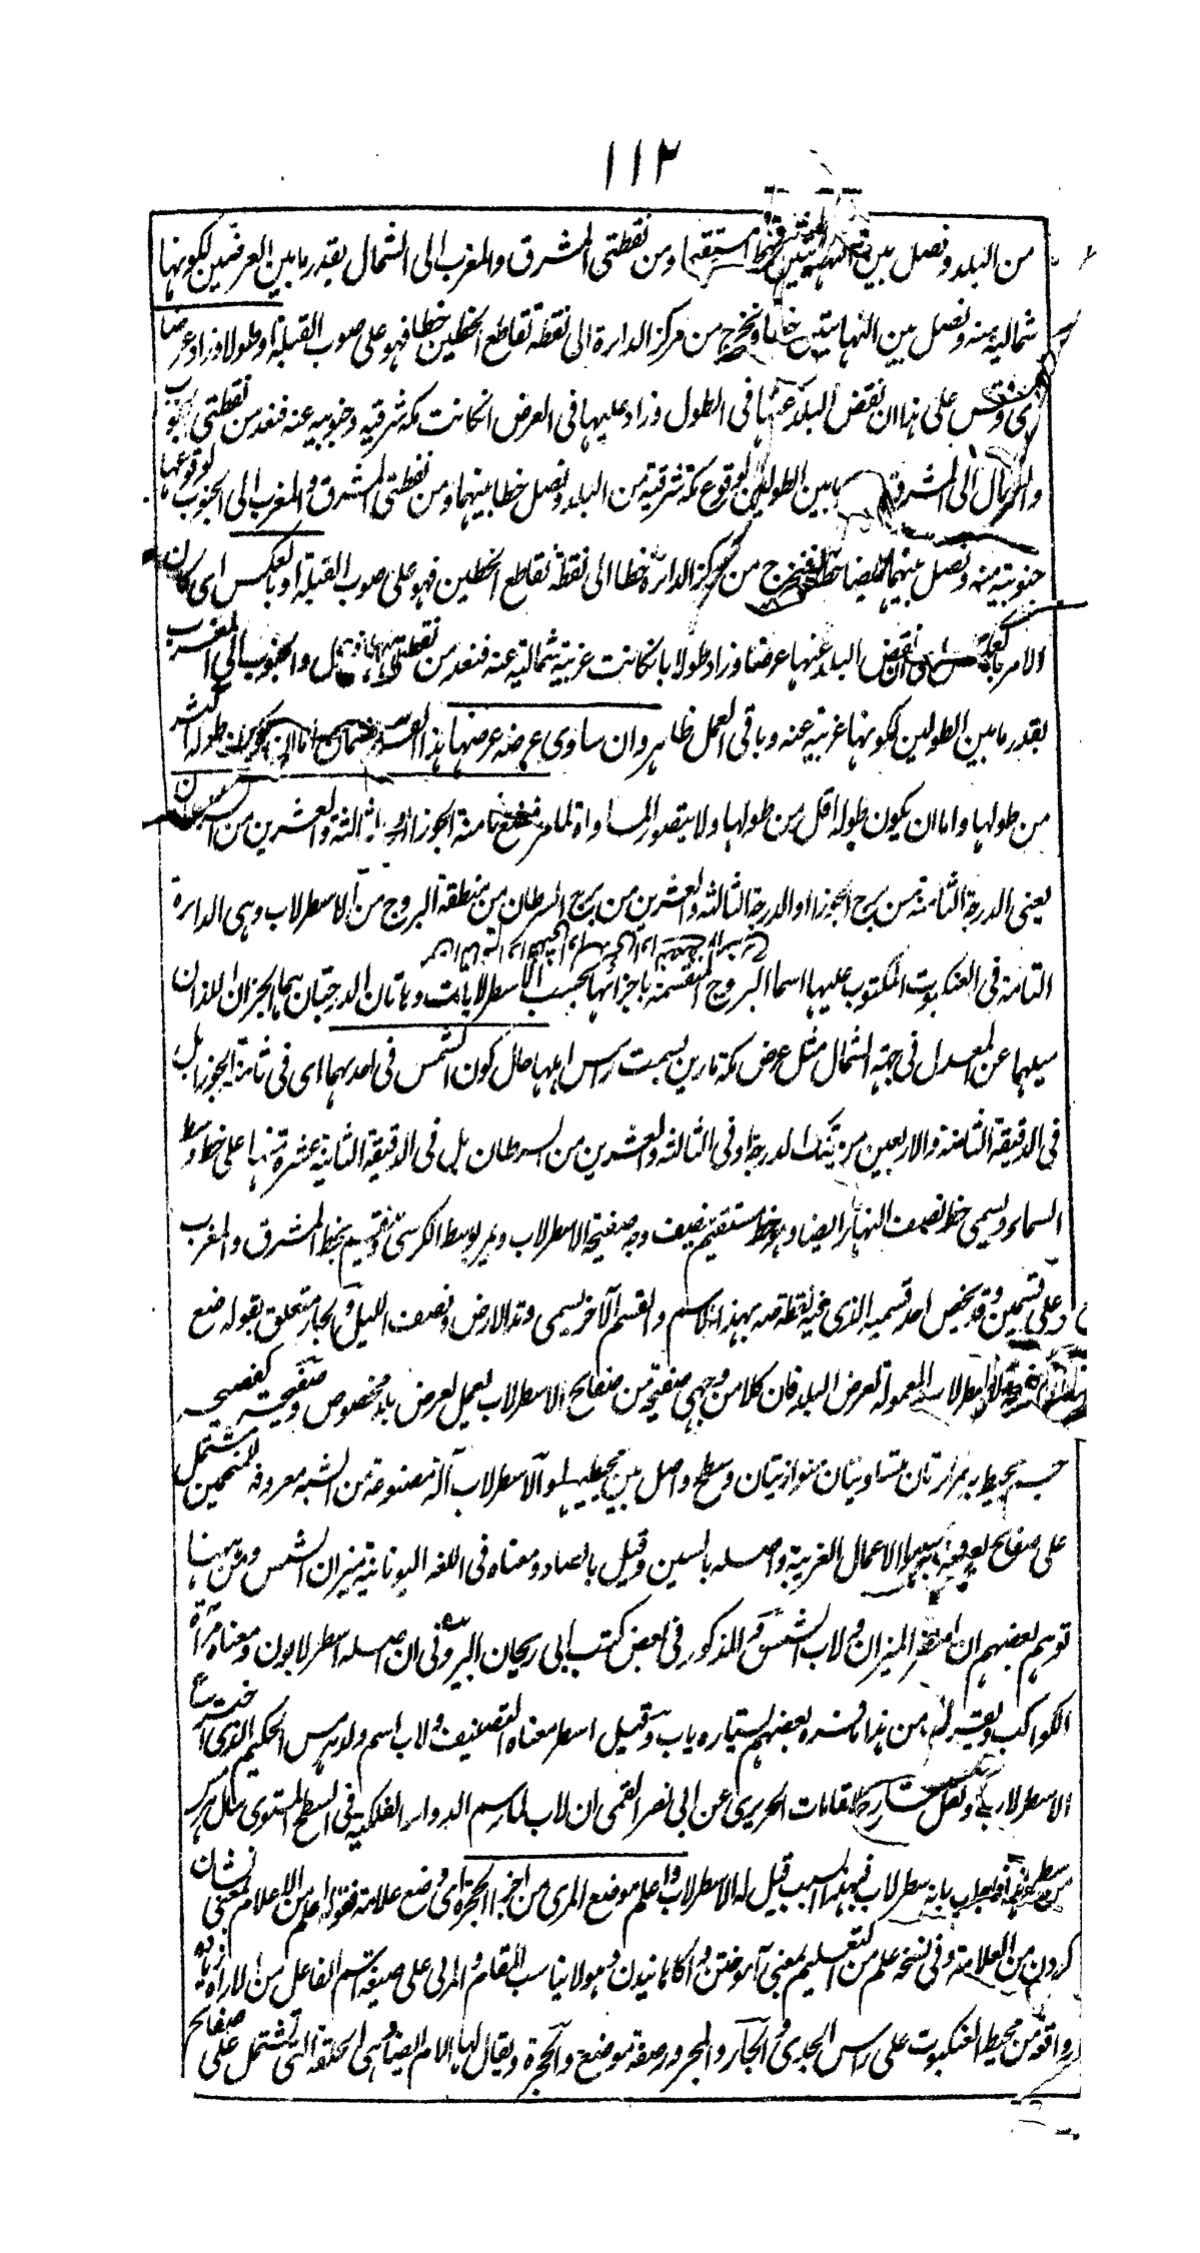 ١١٢
من البلد ونصل بين النهايتين خطا مستقيما ومن نقطتى المشرق والمغرب الى الشمال بقدر ما بين العرضين لكونها
شمالية منه ونصل بين النهايتين خطا ونخرج من مركز الدايرة الى نقطة تقاطع الخطين خطا فهو على صوب القبلة او طولا وزاد عرضا
وقس على هذا ان نقص البلد عنها فى الطول وزاد عليها فى العرض انكانت مكة شرقية وجنوبية عنه فنعد من نقطتى الجنوب
والشمال الى المشرق ما بين الطولين لوقوع مكة شرقية من البلد ونصل خطا بينهما ومن نقطتى المشرق والمغرب الى الجنوب لوقوعها
جنوبية منه ونصل بينهما ايضا خطا فنخرج من مركز الدايرة خطا الى نقطة تقاطع الخطين فهو على صوب القبلة او بالعكس اى كان
الامر بالعكس اى ان نقص البلد عنها عرضا وزاد طولا بانكانت غربية شمالية عنه فنعد من نقطتى الشمال والجنوب الى المغرب
بقدر ما بين الطولين لكونها غربية عنه وباقى العمل ظاهر وان ساوى عرضه عرضها هذا القسم ضمان اما ان يكون طوله اكثر
من طولها واما ان يكون طوله اقل من طولها ولا يتصور المساواة لما مر فضع ثامنة الجوزا او الثالثة والعشرين من السرطان
يعنى الدرجة الثامنة من برج الجوزا او الدرجة الثالثة والعشرين من برج السرطان من منطقة البروج من الاسطرلاب وهى الدايرة
التامة فى العنكبوت المكتوب عليها اسما البروج المنقسمة باجزائها بحسب الاسطرلابات وهاتان الدرجتان هما الجزان اللذان
ميلهما عن المعدل فى جهة الشمال مثل عرض مكة مارين بسمت راس اهلها حال كون الشمس فى احديهما اى فى ثامنة الجوزا بل
فى الدقيقة الثامنة والاربعين من تلك الدرجة او فى الثالثة والعشرين من السرطان بل فى الدقيقة الثانية عشرة منها على خط وسط
السماء ويسمى خط نصف النهار ايضا وهو خط مستقيم ينصف وجه صفيحة الاسطرلاب ويمر بوسط الكرسى وينقسم بخط المشرق والمغرب
على قسمين وقد يخص احد قسميه الذى فيه نقطة منه بهذا الاسم والقسم الآخر يسمى وتد الارض ونصف الليل والجار متعلق بقوله ضع
الاسطرلاب المعمولة لعرض البلد فان كلا من وجهى صفيحة من صفائح الاسطرلاب لعمل لعرض بلد مخصوص وصفيحة كفصيحه
جسم يحيط به دائرتان متساويتان متوازيتان وسطح واصل بين محيطيهما والاسطرلاب آلة مصنوعة من الشبه معروفة للمنجمين تشتمل
على صفائح لمعرفة الاعمال الغريبة واصله بالسين وقيل بالصاد ومعناه فى اللغة اليونانية ميزان الشمس ومن ههنا
توهم بعضهم ان اسطر الميزان ولاب الشمس والمذكور فى بعض كتب ابى ريحان البيرونى ان اصله اسطرلابون ومعناه مرآة
الكواكب ويقرب من هذا ما فسره بعضهم بستاره ياب وقيل اسطر معناه التصنيف ولاب اسم ولد هرمس الحكيم الذى اخترع
الاسطرلاب ونقل شارح المقامات الحريرى عن ابى نصر القمى ان لاب لما رسم الدوائر الفلكية فى السطح المستوى سال هرمس
من سطره فاجاب بانه سطر لاب فبهذا السبب قيل له الاسطرلاب واعلم موضع المرى من اجزا الحجرة اى وضع علامة فقوله اعلم من الاعلام بمعنى نشان
كردن من العلامة وفى نسخة علم من التعليم بمعنى آموختن وآگاهانيدن وهو لا يناسب المقام والمرى على صيغة اسم الفاعل من الاراءة زيادة
واقعة من محيط العنكبوت على راس الجدى والجار والمجرور صفة موضع والحجرة ويقال لها الام ايضا وهى الحلقة التى تشتمل على صفائح